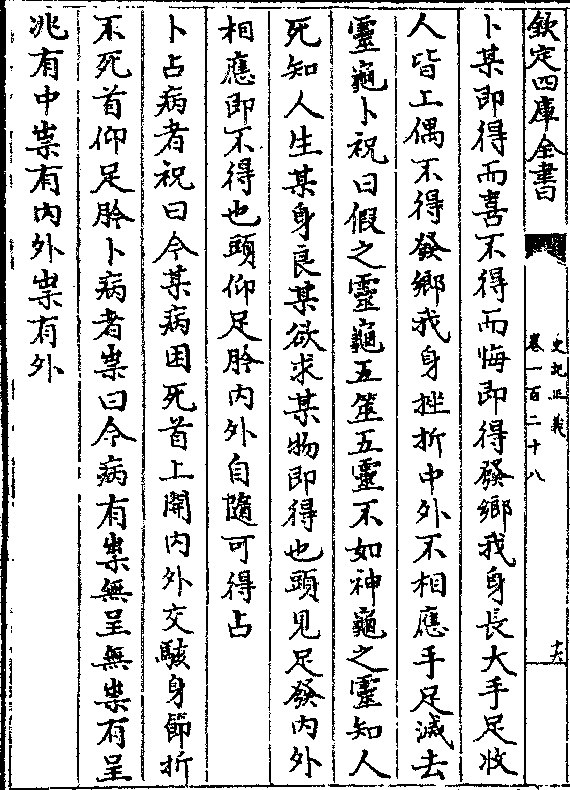 欽定四庫全書
史記正義
卷一百二十八
十六
卜某即得而喜不得而悔即得發鄉我身長大手足收
人皆上偶不得發鄉我身挫折中外不相應手足滅去
靈龜卜祝曰假之靈龜五筮五靈不如神龜之靈知人
死知人生某身良某欲求某物即得也頭見足發內外
相應即不得也頭仰足肣內外自隨可得占
卜占病者祝曰今某病困死首上開內外交駭身節折
不死首仰足肣卜病者祟曰今病有祟無呈無祟有呈
兆有中祟有內外祟有外